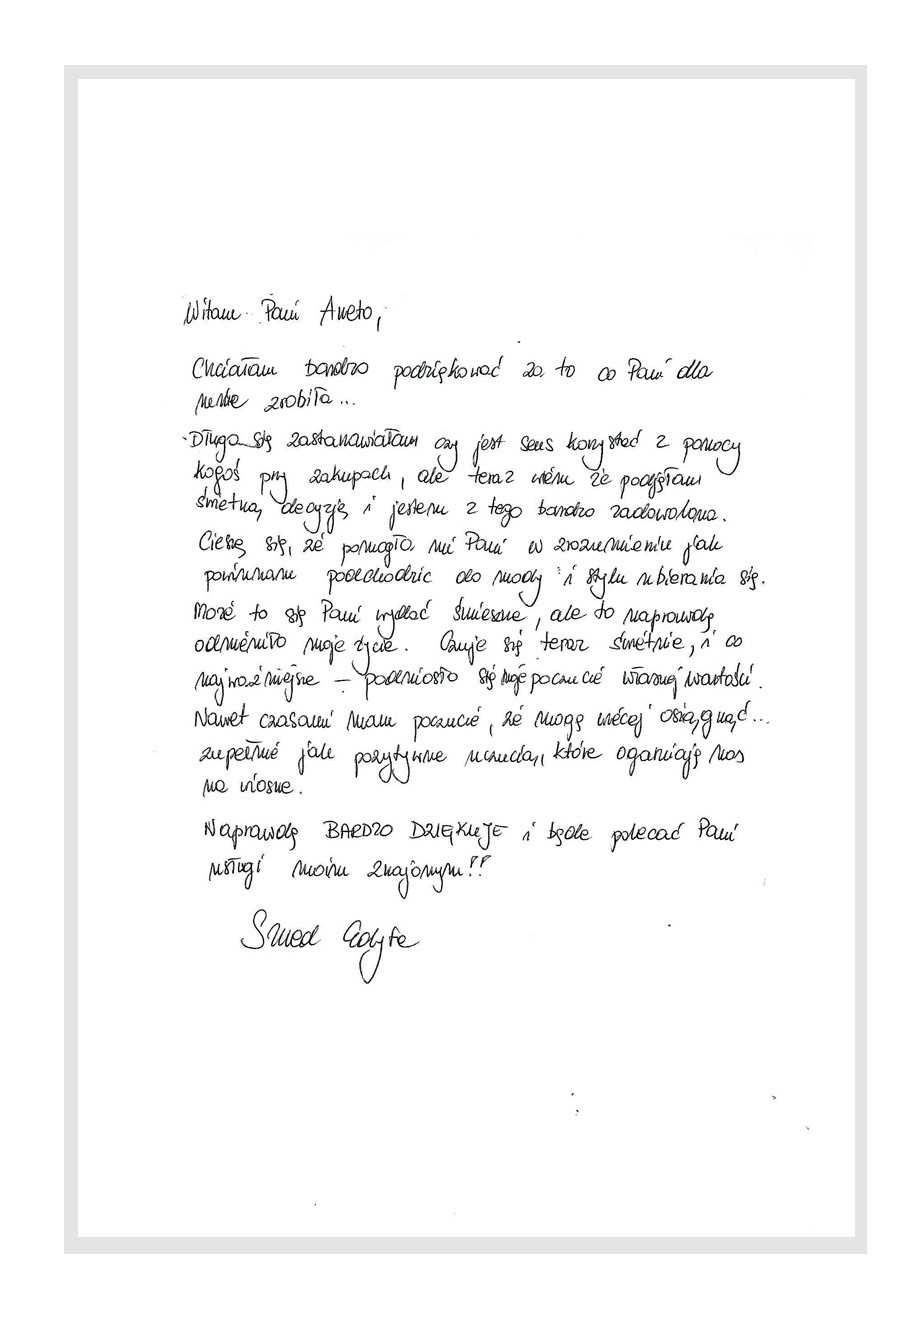 Witam Pani Aneto,
Chciałam bardzo podziękować za to co Pani dla
mnie zrobiła...
Długo się zastanawiałam czy jest sens korzystać z pomocy
kogoś przy zakupach, ale teraz wiem że podjęłam
świetną decyzję i jestem z tego bardzo zadowolona.
Cieszę się, że pomogła mi Pani w zrozumieniu jak
powinnam podchodzić do mody i stylu ubierania się.
Może to się Pani wydać śmieszne, ale to naprawdę
odmieniło moje życie. Czuję się teraz świetnie, i co
najważniejsze - podniosło się moje poczucie własnej wartości.
Nawet czasami mam poczucie, że mogę więcej osiągnąć...
zupełnie jak pozytywne uczucia, które ogarniają nas
na wiosnę.
Naprawdę BARDZO DZIĘKUJĘ i będę polecać Pani
usługi moim znajomym!!
Edyta